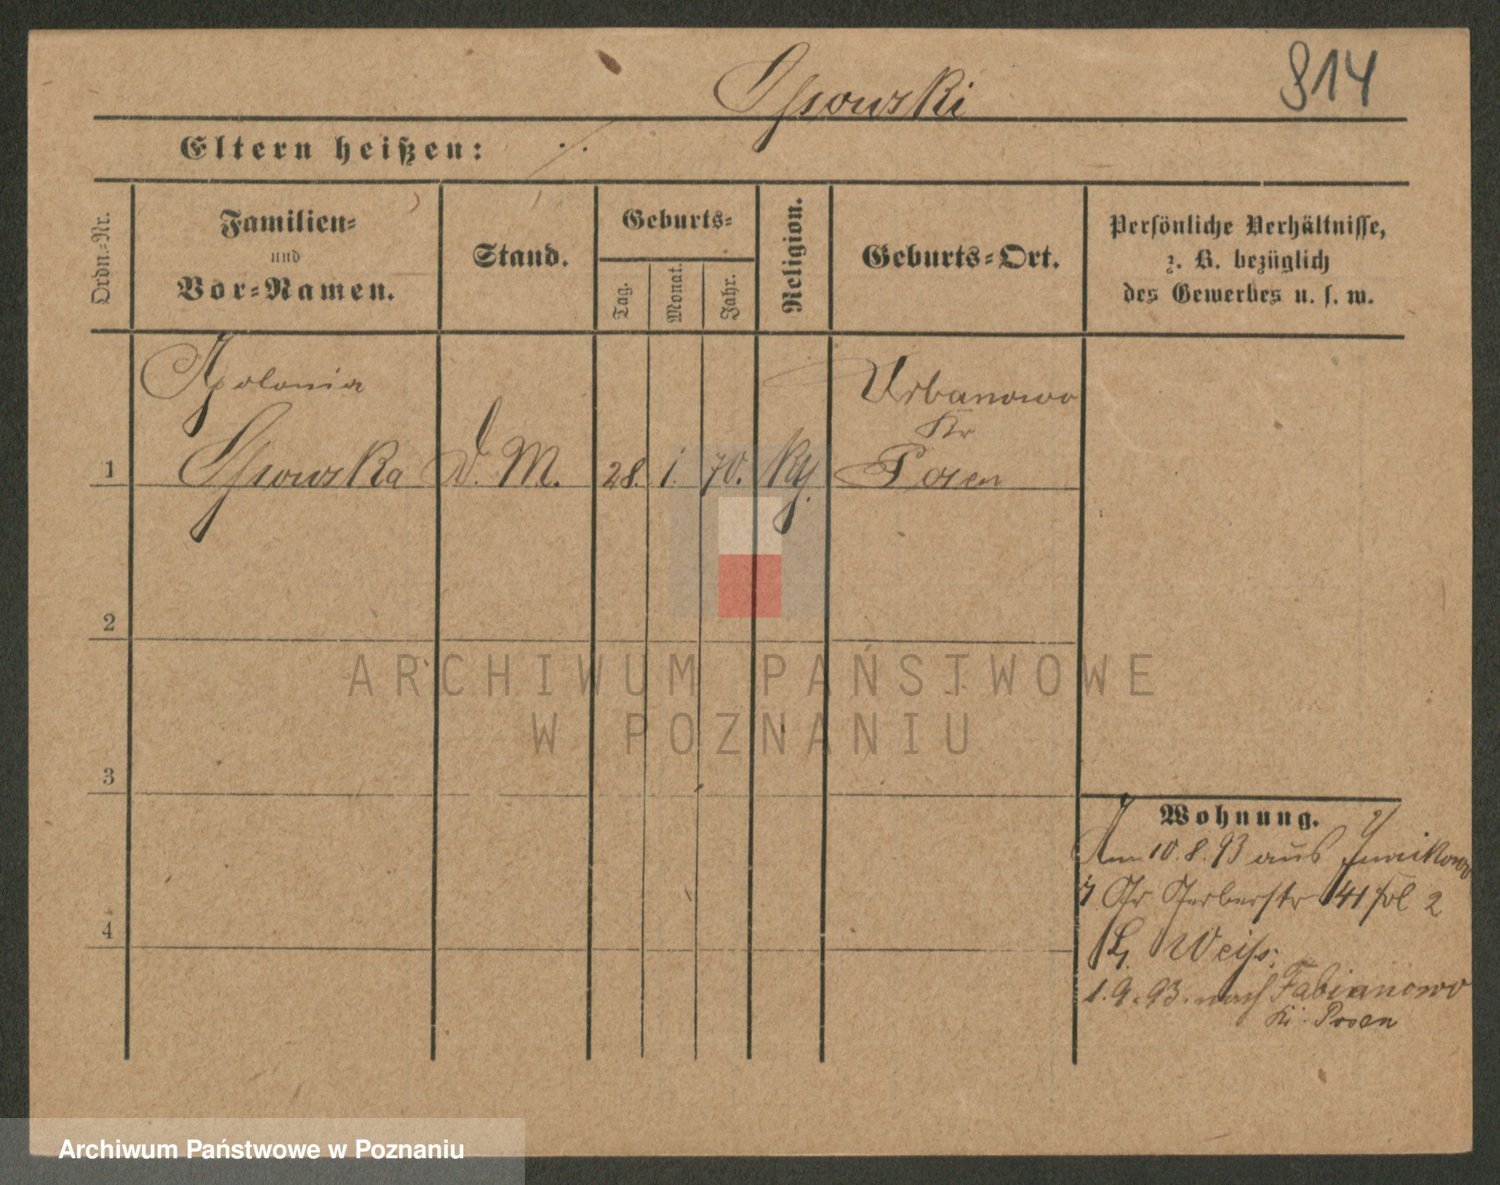 Ossowski
914
Eltern heißen: ./.
Ordn.-Nr.
Familien-
und
Vor-Namen.
Stand.
Geburts-
Tag.
Monat.
Jahr.
Religion.
Geburts-Ort.
Persönliche Verhältnisse,
z. B. bezüglich
des Gewerbes u. s. w.
Apolonia
Urbanowo
Kr
1 Ossowska D. M. 28. 1. 70. Posen
2
3
4
Wohnung.
Am 10.8.93 aus Junikowo
Gr Gerberstr 41 2
Weiss.
1.9.93. nach Fabianowo
Kr. Posen
ARCHIWUM PAŃSTWOWE
W POZNANIU
Archiwum Państwowe w Poznaniu